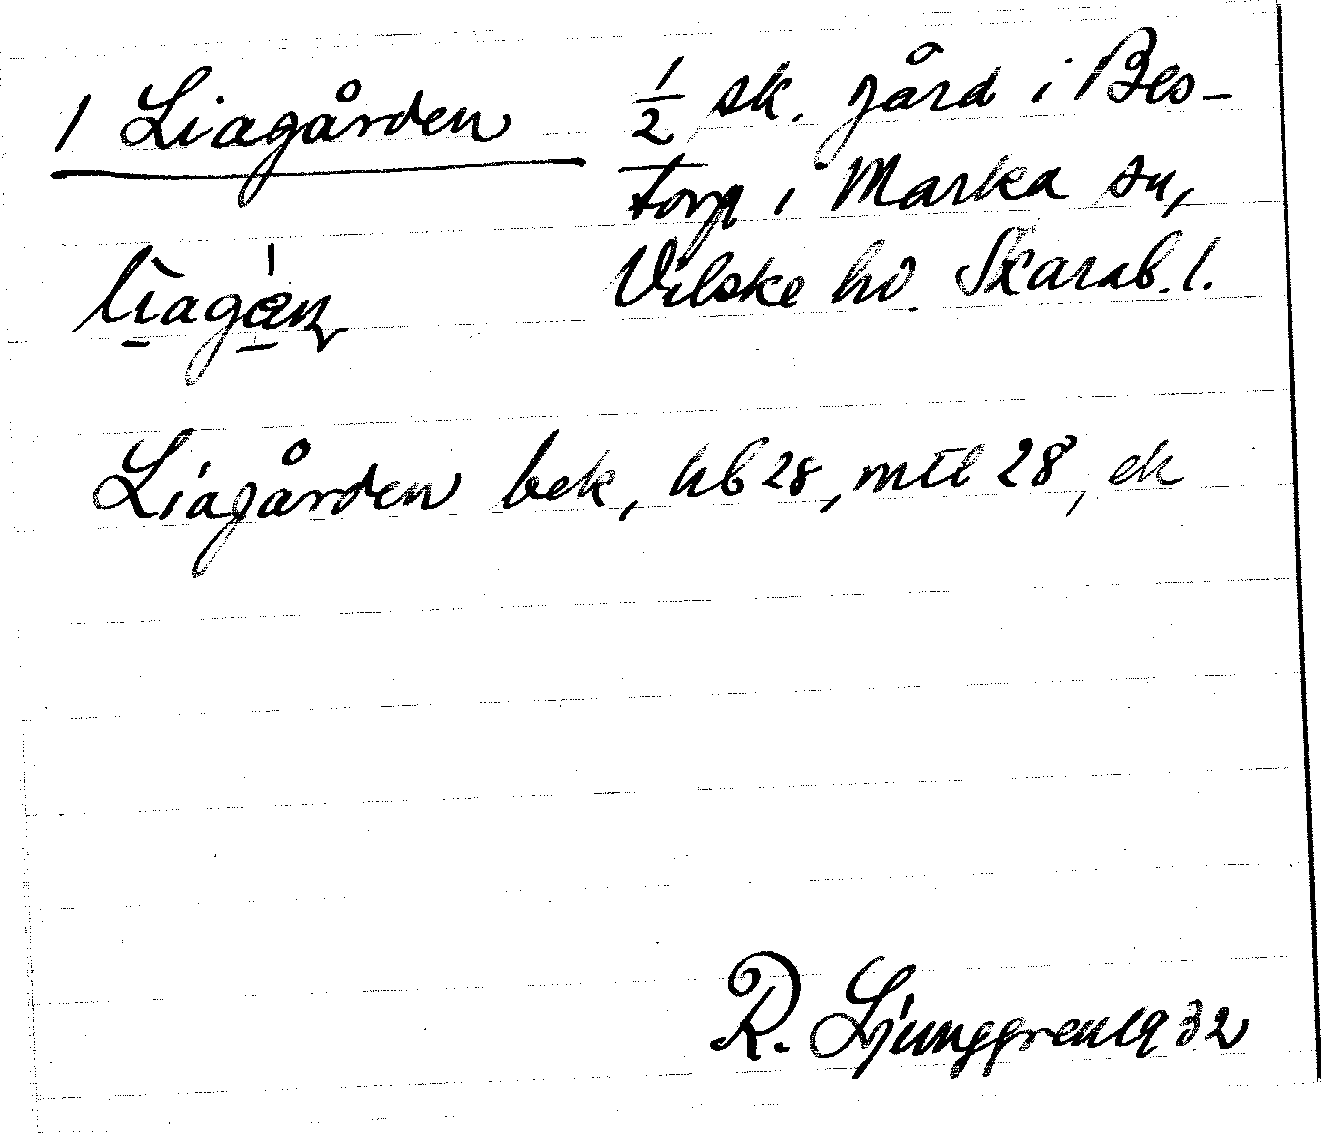 1 Liagården
1/2 sk. gård i Bes-
torp i Marka sn,
Vilske hd. Skarab. l.
Liagården bek, hb 28, mtl 28, ek
R. Ljunggren 1932